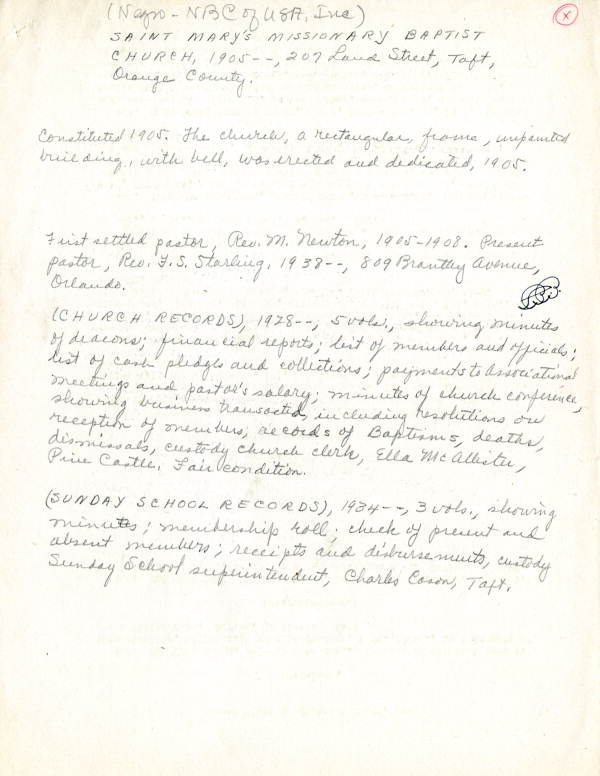 (Negro - NBC of USA, Inc)
X
SAINT MARY'S MISSIONARY BAPTIST
CHURCH, 1905--, 207 Land Street, Taft,
Orange County.
Constituted 1905. The church, a rectangular, frame, unpainted
building, with bell, was erected and dedicated, 1905.
First settled pastor, Rev. M. Newton, 1905-1908. Present
pastor, Rev. F. S. Starling, 1938--, 809 Brantley Avenue,
Orlando.
(CHURCH RECORDS), 1928--, 5 vols., showing minutes
of deacons; financial reports; list of members and officials;
list of cash pledges and collections; payments to Associational
meetings and pastor's salary; minutes of church conference,
showing business transacted, including resolutions on
reception of members; records of Baptisms, deaths,
dismissals, custody church clerk, Ella McAllister,
Pine Castle. Fair condition.
(SUNDAY SCHOOL RECORDS), 1934--, 3 vols., showing
minutes; membership roll; check of present and
absent members; receipts and disbursements, custody
Sunday School superintendent, Charles Eason, Taft.